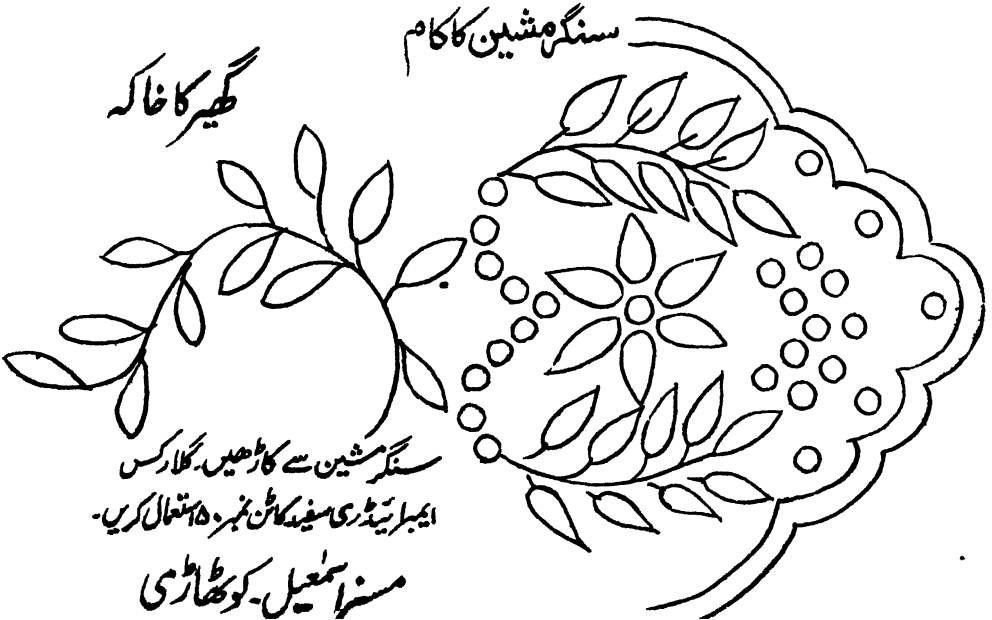 سنگر مشین کا کام
گھیر کا خاکہ
سنگر مشین سے کاڑھیں۔ کلارکس
ایمبرائیڈری سفید کاٹن نمبر ۵۰ استعمال کریں۔
مسز اسمٰعیل۔ کوٹھاڑی